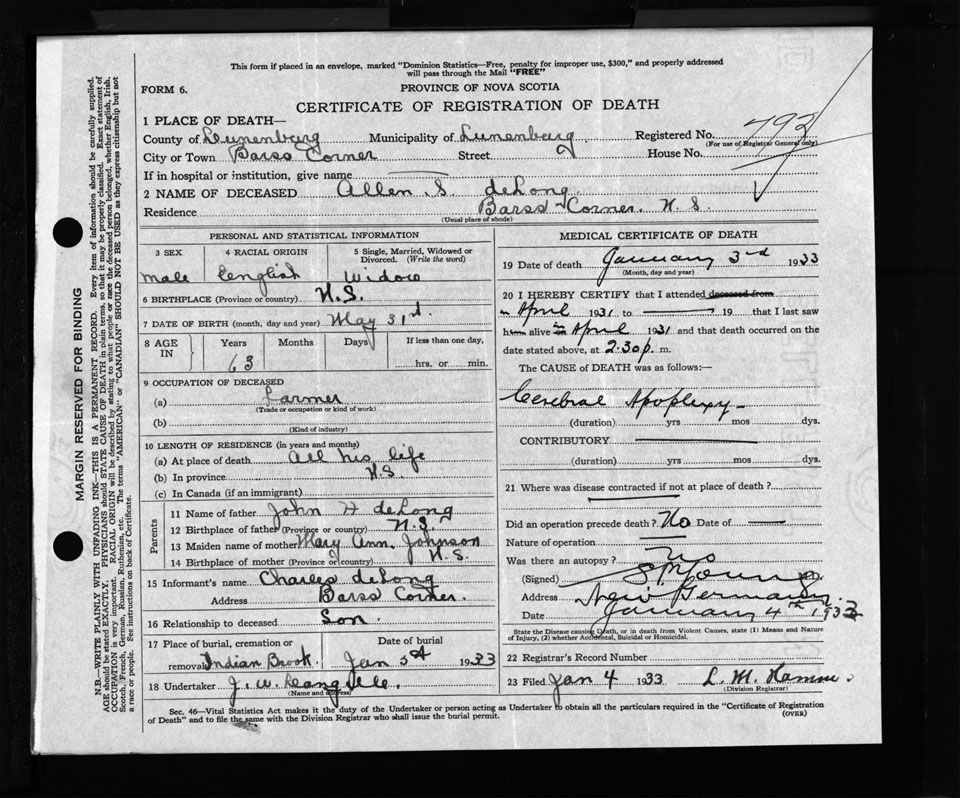 This form if placed in an envelope, marked "Dominion Statistics—Free, penalty for improper use, $300," and properly addressed
will pass through the Mail "FREE"
FORM 6.
PROVINCE OF NOVA SCOTIA
CERTIFICATE OF REGISTRATION OF DEATH
1 PLACE OF DEATH—
County of Lunenburg Municipality of Lunenburg Registered No. 793
(For use of Registrar General only)
City or Town Barss Corner Street House No.
If in hospital or institution, give name
2 NAME OF DECEASED Allen S. deLong
Residence Barss Corner. N. S.
(Usual place of abode)
PERSONAL AND STATISTICAL INFORMATION
3 SEX 4 RACIAL ORIGIN 5 Single, Married, Widowed or Divorced. (Write the word)
Male English Widow
6 BIRTHPLACE (Province or country) N.S.
7 DATE OF BIRTH (month, day and year) May 31st.
8 AGE IN Years Months Days If less than one day,
63 hrs. or min.
9 OCCUPATION OF DECEASED
(a) Farmer
(Trade or occupation or kind of work)
(b)
(Kind of industry)
10 LENGTH OF RESIDENCE (in years and months)
(a) At place of death All his life
(b) In province N.S.
(c) In Canada (if an immigrant)
Parents
11 Name of father John H deLong
12 Birthplace of father (Province or country) N.S.
13 Maiden name of mother Mary Ann Johnson
14 Birthplace of mother (Province or country) N.S.
15 Informant's name Charles deLong
Address Barss Corner.
16 Relationship to deceased Son.
17 Place of burial, cremation or Date of burial
removal Indian Brook. Jan 5st 1933
18 Undertaker J. W.
(Name and address)
MEDICAL CERTIFICATE OF DEATH
19 Date of death January 3rd 1933
(Month, day and year)
20 I HEREBY CERTIFY that I attended deceased from
in April 1931 to 19 that I last saw
him alive in April 1931 and that death occurred on
date stated above, at 2.30 p. m.
The CAUSE of DEATH was as follows:—
Cerebral Apoplexy
(duration) yrs mos dys.
CONTRIBUTORY
(duration) yrs mos dys.
21 Where was disease contracted if not at place of death?
Did an operation precede death? No Date of
Nature of operation
Was there an autopsy? No
(Signed)
Address New Germany.
Date January 4th 1933
State the Disease causing Death, or in death from Violent Causes, state (1) Means and Nature
of Injury, (2) whether Accidental, Suicidal or Homicidal.
22 Registrar's Record Number
23 Filed Jan 4 1933 L. M.
(Division Registrar)
Sec. 46—Vital Statistics Act makes it the duty of the Undertaker or person acting as Undertaker to obtain all the particulars required in the "Certificate of Registration
of Death" and to file the same with the Division Registrar who shall issue the burial permit.
(OVER)
MARGIN RESERVED FOR BINDING
N.B.—WRITE PLAINLY WITH UNFADING INK—THIS IS A PERMANENT RECORD. Every item of information should be carefully supplied.
AGE should be stated EXACTLY. PHYSICIANS should STATE CAUSE OF DEATH in plain terms, so that it may be properly classified. Exact statement of
OCCUPATION is very important. RACIAL ORIGIN will be described by stating to what people or race the deceased person belonged, whether English, Irish,
Scotch, French, German, Russian, Ruthenian, etc. The terms "AMERICAN" or "CANADIAN" SHOULD NOT BE USED as they express citizenship but not
a race or people. See instructions on back of Certificate.